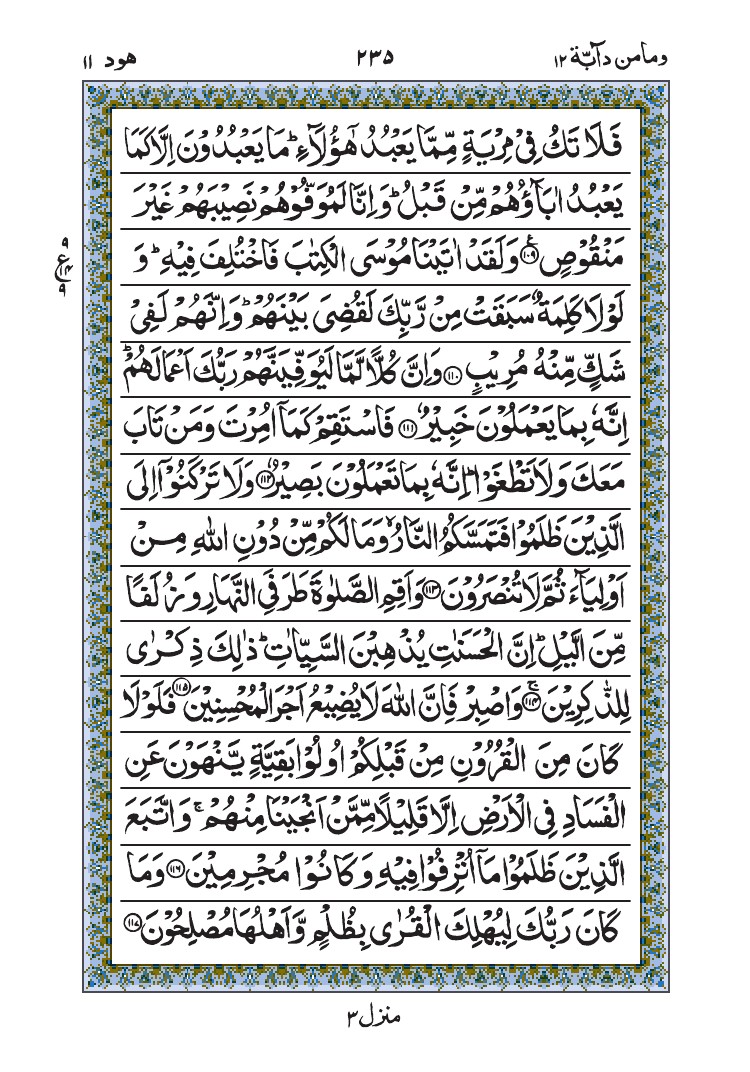 ومامن دآبّة ۱۲ ۲۳۵ هود ۱۱
فَلَا تَكُ فِىۡ مِرۡيَةٍ مِّمَّا يَعۡبُدُ هٰٓؤُلَآءِ‌ؕ مَا يَعۡبُدُوۡنَ اِلَّا كَمَا
يَعۡبُدُ اٰبَآؤُهُمۡ مِّنۡ قَبۡلُ‌ؕ وَاِنَّا لَمُوَفُّوۡهُمۡ نَصِيۡبَهُمۡ غَيۡرَ
مَنۡقُوۡصٍ ﴿۱۰۹﴾ وَلَقَدۡ اٰتَيۡنَا مُوۡسَى الۡكِتٰبَ فَاخۡتُلِفَ فِيۡهِ‌ؕ وَ
لَوۡلَا كَلِمَةٌ سَبَقَتۡ مِنۡ رَّبِّكَ لَقُضِىَ بَيۡنَهُمۡ‌ؕ وَاِنَّهُمۡ لَفِىۡ
شَكٍّ مِّنۡهُ مُرِيۡبٍ ﴿۱۱۰﴾ وَاِنَّ كُلًّا لَّمَّا لَيُوَفِّيَنَّهُمۡ رَبُّكَ اَعۡمَالَهُمۡ‌ؕ
اِنَّهٗ بِمَا يَعۡمَلُوۡنَ خَبِيۡرٌ ﴿۱۱۱﴾ فَاسۡتَقِمۡ كَمَاۤ اُمِرۡتَ وَمَنۡ تَابَ
مَعَكَ وَلَا تَطۡغَوۡا‌ؕ اِنَّهٗ بِمَا تَعۡمَلُوۡنَ بَصِيۡرٌ ﴿۱۱۲﴾ وَلَا تَرۡكَنُوۡۤا اِلَى
الَّذِيۡنَ ظَلَمُوۡا فَتَمَسَّكُمُ النَّارُۙ وَمَا لَكُمۡ مِّنۡ دُوۡنِ اللّٰهِ مِنۡ
اَوۡلِيَآءَ ثُمَّ لَا تُنۡصَرُوۡنَ ﴿۱۱۳﴾ وَاَقِمِ الصَّلٰوةَ طَرَفَىِ النَّهَارِ وَزُلَفًا
مِّنَ الَّيۡلِ‌ؕ اِنَّ الۡحَسَنٰتِ يُذۡهِبۡنَ السَّيِّاٰتِ‌ؕ ذٰلِكَ ذِكۡرٰى
لِلذّٰكِرِيۡنَ‌ۚ ﴿۱۱۴﴾ وَاصۡبِرۡ فَاِنَّ اللّٰهَ لَا يُضِيۡعُ اَجۡرَ الۡمُحۡسِنِيۡنَ ﴿۱۱۵﴾ فَلَوۡلَا
كَانَ مِنَ الۡقُرُوۡنِ مِنۡ قَبۡلِكُمۡ اُولُوۡا بَقِيَّةٍ يَّنۡهَوۡنَ عَنِ
الۡفَسَادِ فِى الۡاَرۡضِ اِلَّا قَلِيۡلًا مِّمَّنۡ اَنۡجَيۡنَا مِنۡهُمۡ‌ۚ وَاتَّبَعَ
الَّذِيۡنَ ظَلَمُوۡا مَاۤ اُتۡرِفُوۡا فِيۡهِ وَكَانُوۡا مُجۡرِمِيۡنَ ﴿۱۱۶﴾ وَمَا
كَانَ رَبُّكَ لِيُهۡلِكَ الۡقُرٰى بِظُلۡمٍ وَّاَهۡلُهَا مُصۡلِحُوۡنَ ﴿۱۱۷﴾
۹
ع ۱۴
۹
منزل ۳